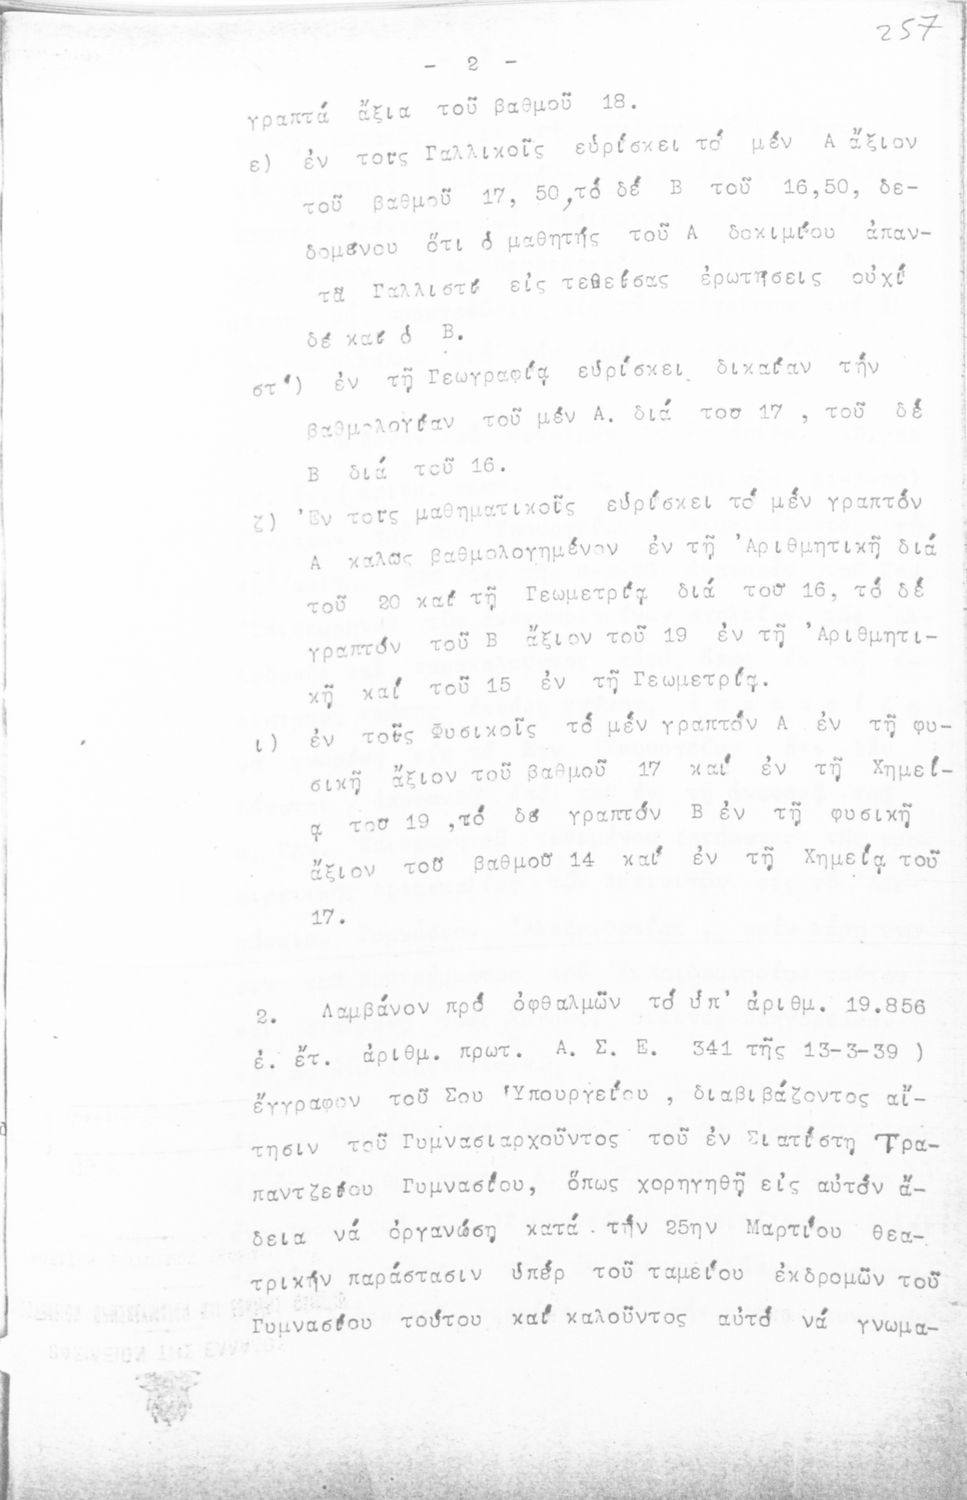 257
- 2 -
γραπτά ἄξια τοῦ βαθμοῦ 18.
ε) ἐν τοις Γαλλικοῖς εὑρίσκει τό μέν Α ἄξιον
τοῦ βαθμοῦ 17, 50, τό δέ Β τοῦ 16,50, δε-
δομένου ὅτι ὁ μαθητής τοῦ Α δοκιμίου ἀπαν-
τᾶ Γαλλιστί εἰς τεθείσας ἐρωτήσεις οὐχί
δέ καί ὁ Β.
στ') ἐν τῇ Γεωγραφίᾳ εὑρίσκει δικαίαν τήν
βαθμολογίαν τοῦ μέν Α. διά του 17 , τοῦ δέ
Β διά τοῦ 16.
ζ) Ἐν τοις μαθηματικοῖς εὑρίσκει τό μέν γραπτόν
Α καλως βαθμολογημένον ἐν τῇ Ἀριθμητικῇ διά
τοῦ 20 καί τῇ Γεωμετρίᾳ διά τοῦ 16, τό δέ
γραπτόν τοῦ Β ἄξιον τοῦ 19 ἐν τῇ Ἀριθμητι-
κῇ καί τοῦ 15 ἐν τῇ Γεωμετρίᾳ.
ι) ἐν τοῖς Φυσικοῖς τό μέν γραπτόν Α ἐν τῇ φυ-
σικῇ ἄξιον τοῦ βαθμοῦ 17 καί ἐν τῇ Χημεί-
ᾳ του 19 ,τό δε γραπτόν Β ἐν τῇ φυσικῇ
ἄξιον τοῦ βαθμοῦ 14 καί ἐν τῇ Χημείᾳ τοῦ
17.
2. Λαμβάνον πρό ὀφθαλμῶν τό ὑπ' ἀριθμ. 19.856
ἐ. ἔτ. ἀριθμ. πρωτ. Α. Σ. Ε. 341 τῆς 13-3-39 )
ἔγγραφον τοῦ Σου Ὑπουργείου , διαβιβάζοντος αἴ-
τησιν τοῦ Γυμνασιαρχοῦντος τοῦ ἐν Σιατίστῃ Τρα-
παντζείου Γυμνασίου, ὅπως χορηγηθῇ εἰς αὐτόν ἄ-
δεια νά ὀργανώσῃ κατά τήν 25ην Μαρτίου θεα-
τρικήν παράστασιν ὑπέρ τοῦ ταμείου ἐκδρομῶν τοῦ
Γυμνασίου τούτου καί καλοῦντος αὐτό νά γνωμα-